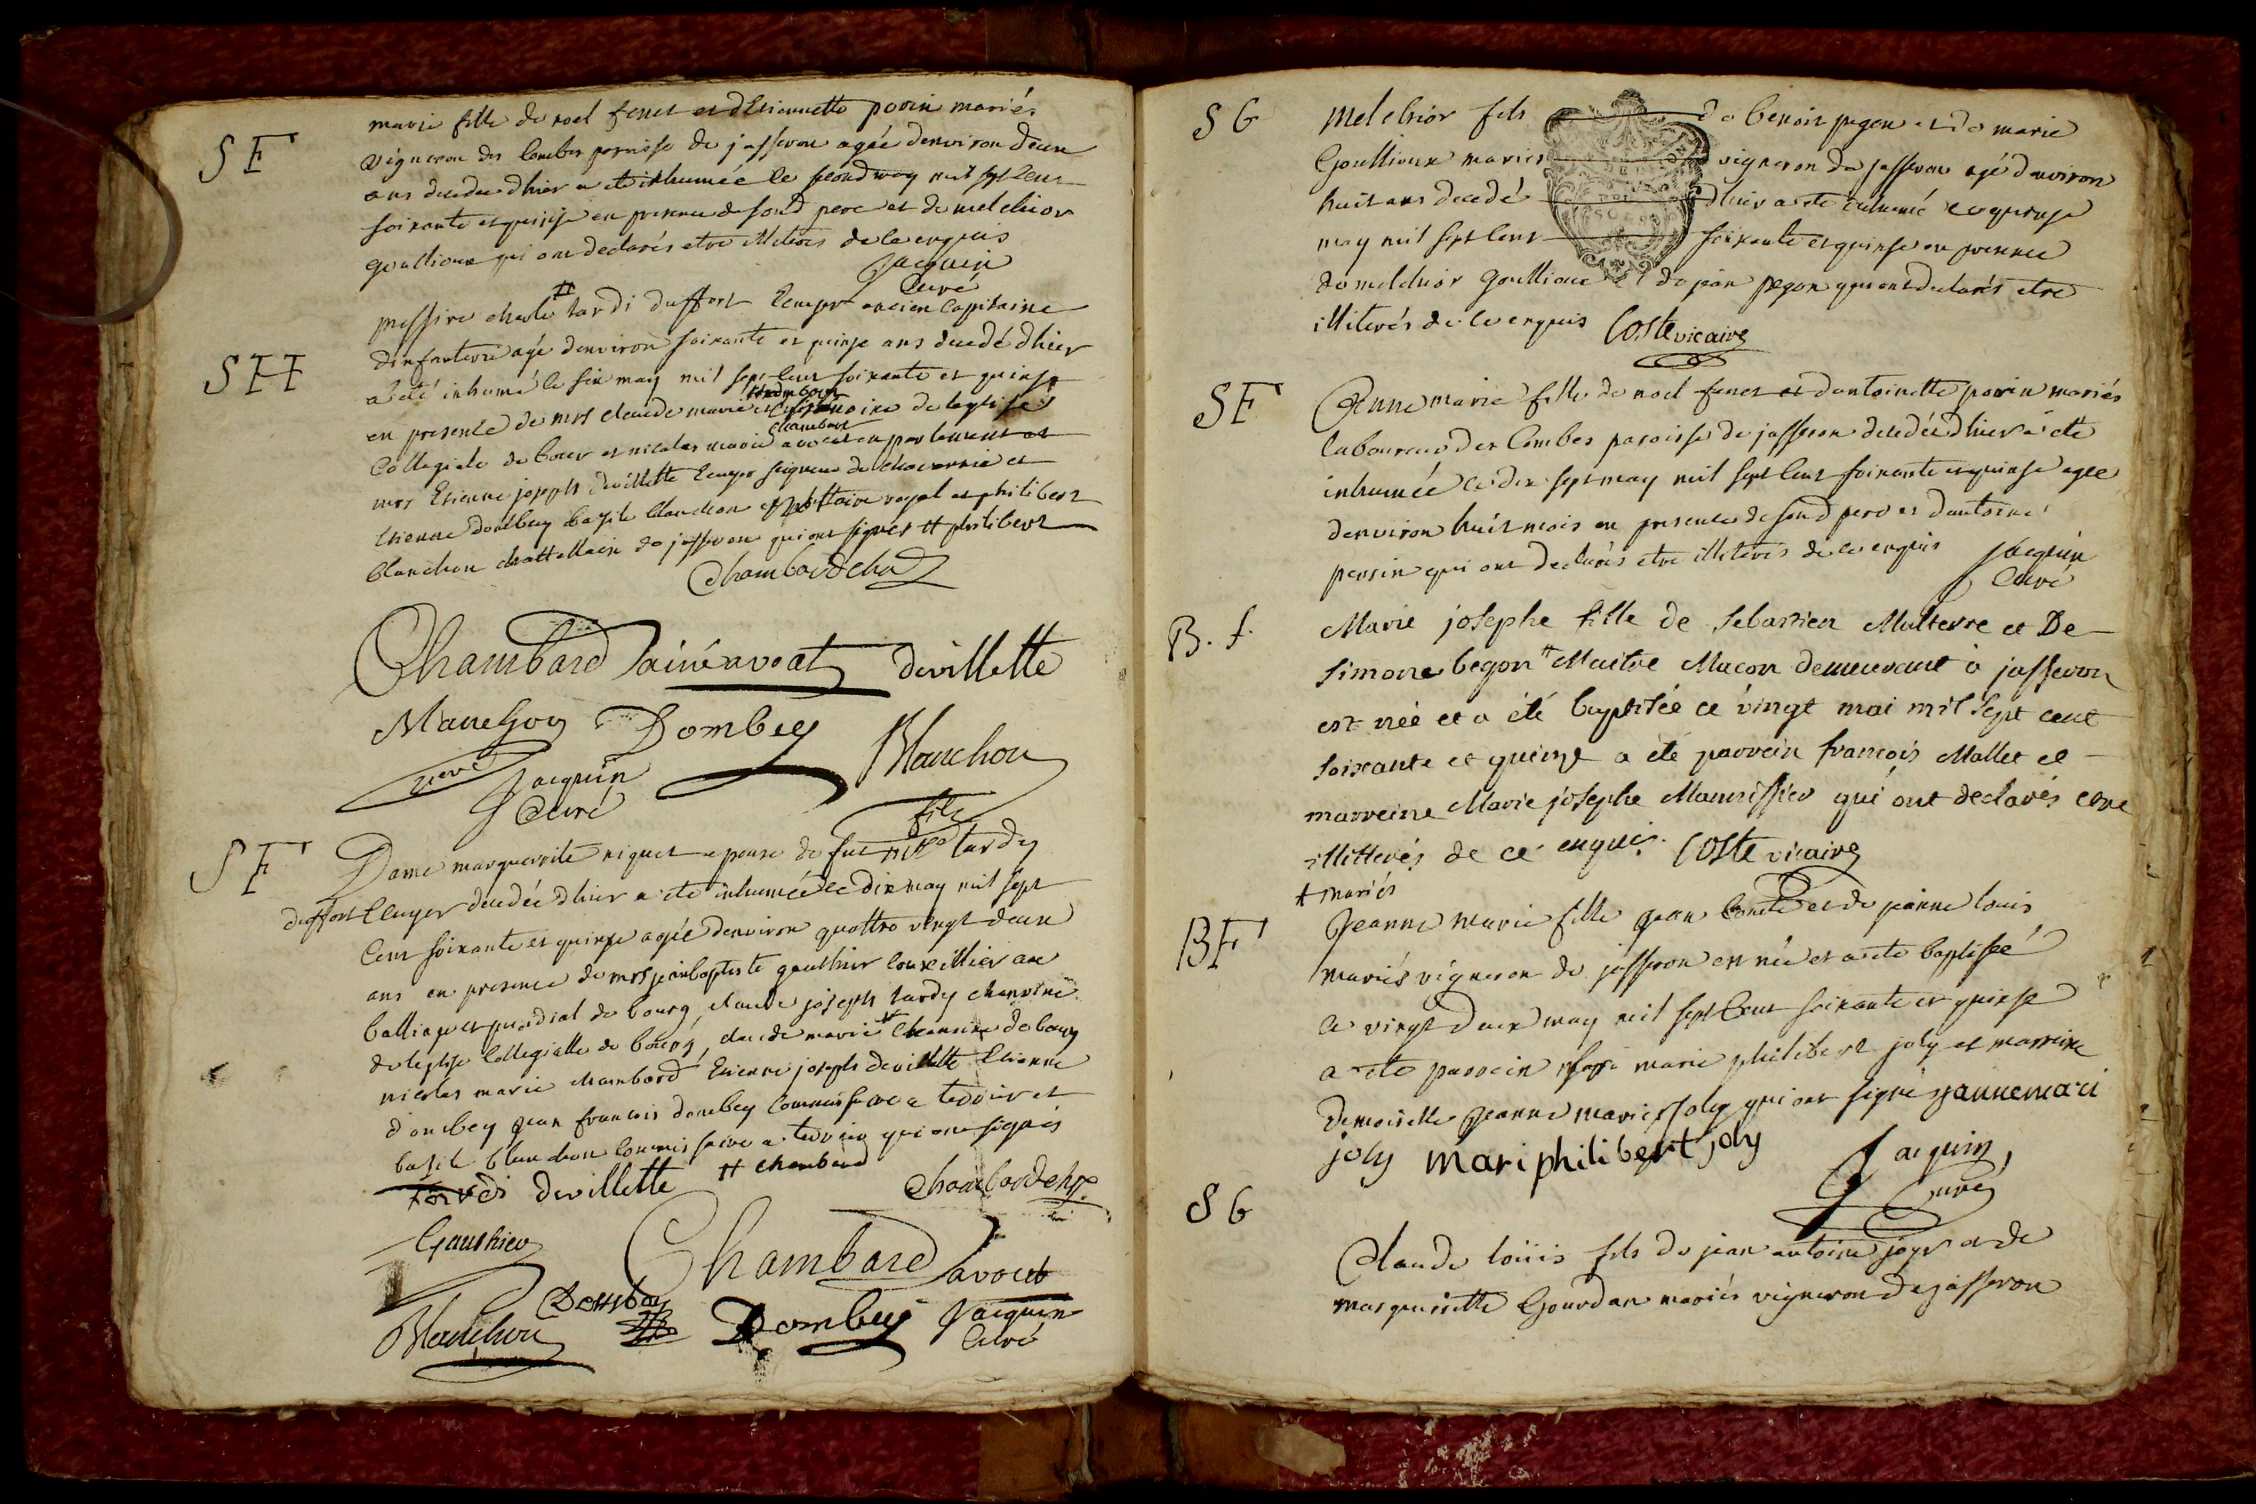 SF
marie fille de noel fenet et dEtiennette porin mariés
vigneron des Combes paroisse de jasseron agée denviron deux
ans decedée dhier a ete inhumée le second may mil sept Cent
soixante et quinze en presence de son d pere et de melchior
goullioux qui ont declarés etre illiterés de ce enquis
Jacquin
Curé
SH
messire charle tardi duffort Ecuyer ancien Capitaine
dinfanterie agé denviron soixante et quinze ans decedé dhier
a été inhumé le six may mil sept Cent soixante et quinze
en presence de mrs claude marie chanoine de leglise
Collegiale de bour et nicolas marie chambard avocat en parlement et
mrs Etienne joseph devillette Ecuyer seigneur de et
Etienne dombey bazile blanchon notaire royal et philibert
blanchon chattellain de jasseron qui ont signés # philibert
Chambard cha
Chambard ainé avocat devillette
Dombey Blanchon
Jacquin
Curé
fils
SF
Dame marguerite niquet epouse de feu tardy
duffort Ecuyer decedée dhier a ete inhumée le dix may mil sept
Cent soixante et quinze agée denviron quattre vingt deux
ans en presence de mrs jeanbaptiste gauthier Conseillier au
balliage et presidial de bourg, claude joseph tardy chanoine
de leglise Collegialle de bourg, claude marie # Chanoine de bourg
nicolas marie chambard Etienne joseph devillette Etienne
dombey jean francois dombey Commissaire a terrier et
bazile blanchon Commissaire a terrier qui ont signés
devillette # chambard Chambard
Gauthier
Chambard avocat
Dombey
Blanchon Dombey Jacquin
Curé
SG
Melchior fils de benoit pegon et de marie
Goullioux mariés vigneron de jasseron agé denviron
huit ans decedé dhier a ete inhumé ce quinze
may mil sept Cent soixante et quinze en presence
de melchior Goullioux et de jean pegon qui ont declarés etre
illiterés de ce enquis Coste vicaire
SF
Anne marie fille de noel fenet et dantoinette porin mariés
laboureur des Combes paroisse de jasseron decedée dhier a ete
inhumée ce dix sept may mil sept Cent soixante et quinze agée
denviron huit mois en presence de son d pere et dantoine
perrin qui ont declarés etre illiterés de ce enquis Jacquin
Curé
B. f.
Marie josephe fille de Sebastien Multerre et De
Simone begon # Maitre Macon demeurant à jasseron
est née et a été baptisée ce vingt mai mil sept cent
soixante et quinze a été parrein francois Mallet et
marreine Marie josephe Maurissier qui ont declarés etre
illitterés de ce enquis. Coste vicaire
# mariés
BF
Jeanne Marie fille jean Comte et de jeanne louis
mariés vigneron de jasseron est née et a ete baptisée
ce vingt deux may mil sept Cent soixante et quinze
a ete parrein marie philibert joly et marreine
Demoiselle jeanne marie joly qui ont signé jannemari
joly mari philibert joly
Jacquin
Curé
SG
Claude loüis fils de jean antoine et de
marguerite Gourdan mariés vigneron de jasseron